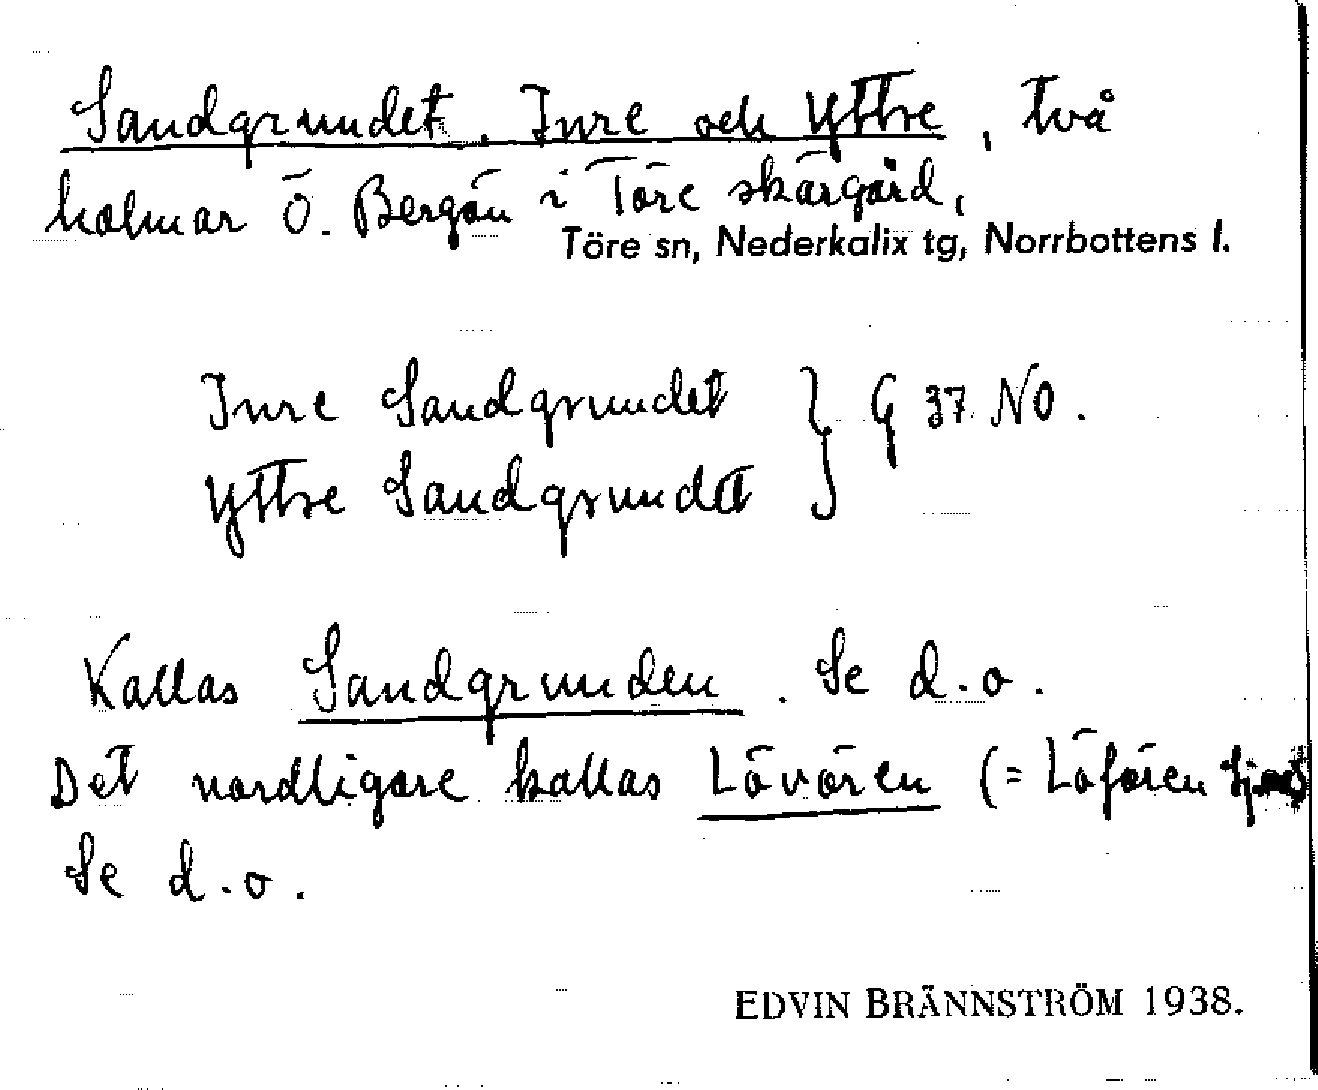 Sandgrundet, Inre och Yttre, två
holmar Ö. Bergön i Töre skärgård,
Töre sn, Nederkalix tg, Norrbottens l.
Inre Sandgrundet } G 37 NO.
Yttre Sandgrundet
Kallas Sandgrunden. Se d.o.
Det nordligare kallas Lövören (= Löfören
Se d.o.
EDVIN BRÄNNSTRÖM 1938.